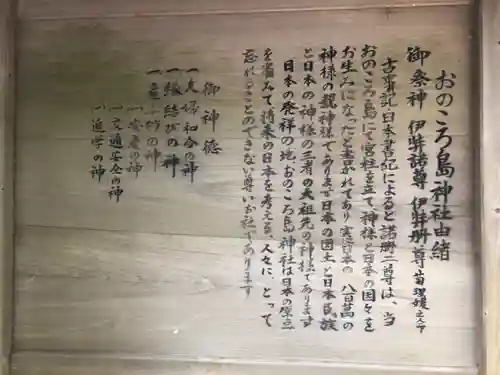 おのころ島神社由緒
御祭神 伊弉諾尊 伊弉册尊 菖理媛之命
古事記、日本書記によると諾册二尊は、当
おのころ島にて宮柱を立て、神様と日本の国々を
お生みになったと書かれてあり、実に日本の 八百萬の
神様の親神様であります。日本の国土と日本民族
と日本の神様の三者の大祖先の神様であります
日本の発祥の地、おのころ島神社は日本の原点
を省みて将来の日本を考える、人々に、とって
忘れることのできない尊いお社であります
御神徳
一夫婦和合の神
一縁結びの神
一の神
一安産の神
一交通安全の神
一進学の神